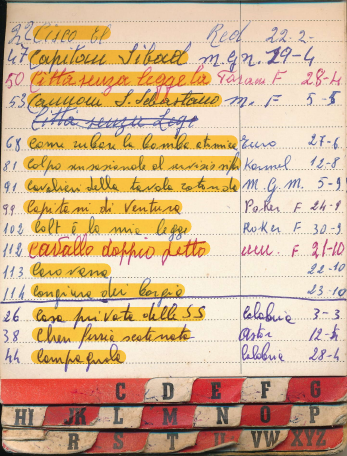 32 Cisco el Red 22-2-
47 Capitan Sibad M.G.M. 29-4
50 Città senza legge la Param F 28-4
53 Cannoni S. Sebastiano M. F 5-5
Città senza Lege
68 Come rubare la bomba atomica Euro 27-6
81 Colpo sensazionale al servizio Karmel 12-8
91 Cavalieri della tavola rotonda M.G.M. 5-9
99 Capitani di Ventura F 24-9
102 Colt è la mia legge F 30-9
112 Cavallo doppio petto F 21-10
113 Carovana 22-10
114 Congiura dei Borgia 23-10
26 Casa privata delle SS 3-3
38 Cheu furia scatenata Astor 12-
44 Compagnola 28-4
C D E F G
HI JK L M N O P
R S T U VW XYZ